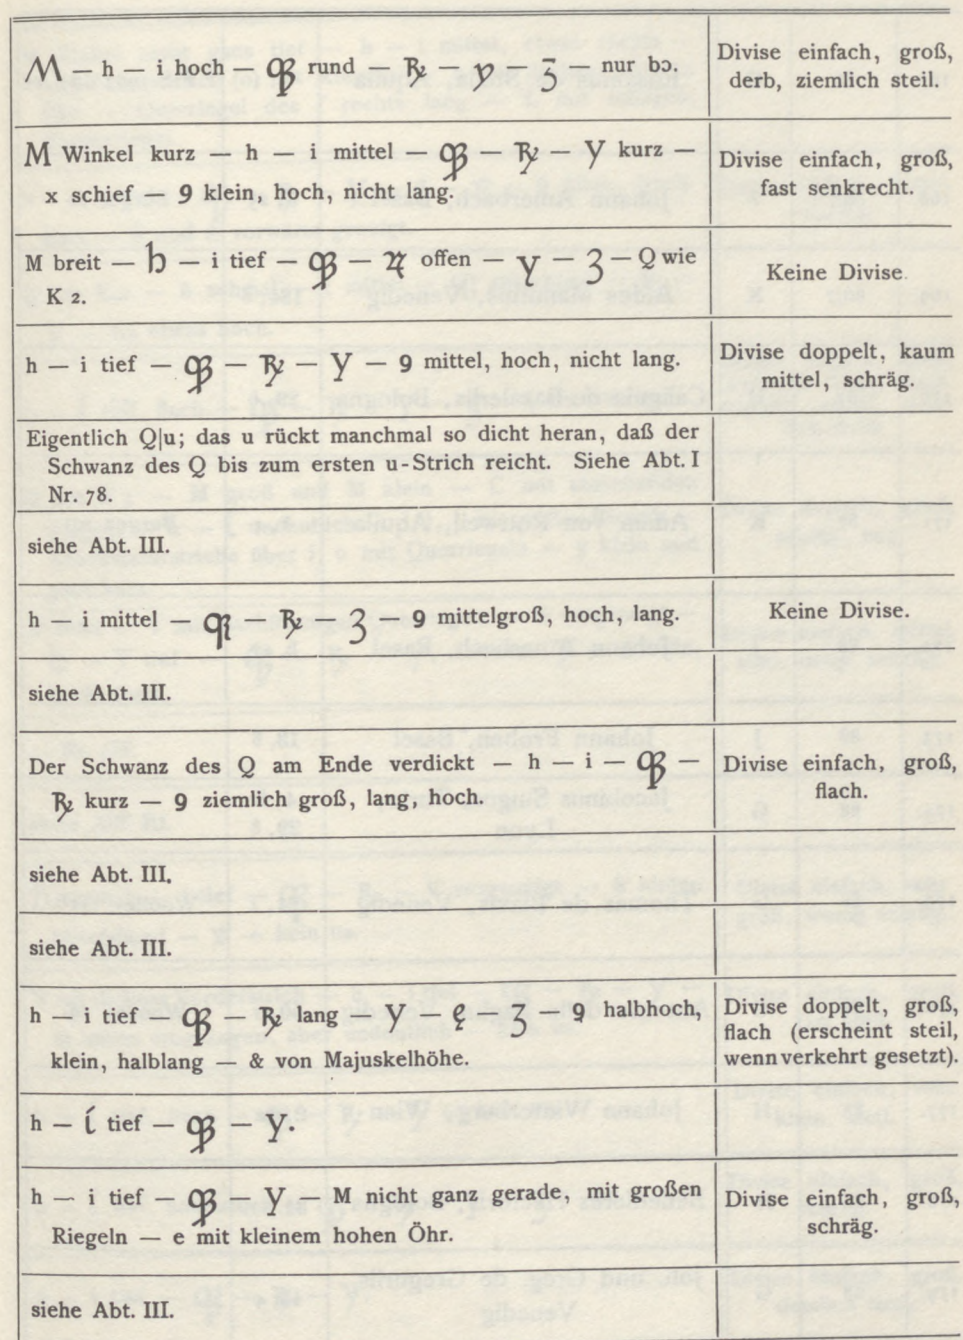 M — h — i hoch — ꝙ rund — ℞ — y — ʒ — nur bɔ.
Divise einfach, groß,
derb, ziemlich steil.
M Winkel kurz — h — i mittel — ꝙ — ℞ — y kurz —
x schief — 9 klein, hoch, nicht lang.
Divise einfach, groß,
fast senkrecht.
M breit — h — i tief — ꝙ — ꝶ offen — y — 3 — Q wie
K 2.
Keine Divise
h — i tief — ꝙ — ℞ — y — 9 mittel, hoch, nicht lang.
Divise doppelt, kaum
mittel, schräg.
Eigentlich Q|u; das u rückt manchmal so dicht heran, daß der
Schwanz des Q bis zum ersten u-Strich reicht. Siehe Abt. I
Nr. 78.
siehe Abt. III.
h — i mittel — ꝙ — ℞ — 3 — 9 mittelgroß, hoch, lang.
Keine Divise.
siehe Abt. III.
Der Schwanz des Q am Ende verdickt — h — i — ꝙ —
℞ kurz — 9 ziemlich groß, lang, hoch.
Divise einfach, groß,
flach.
siehe Abt. III.
siehe Abt. III.
h — i tief — ꝙ — ℞ lang — y — ę — ʒ — 9 halbhoch,
klein, halblang — & von Majuskelhöhe.
Divise doppelt, groß,
flach (erscheint steil,
wenn verkehrt gesetzt).
h — í tief — ꝙ — y.
h — i tief — ꝙ — y — M nicht ganz gerade, mit großen
Riegeln — e mit kleinem hohen Öhr.
Divise einfach, groß,
schräg.
siehe Abt. III.